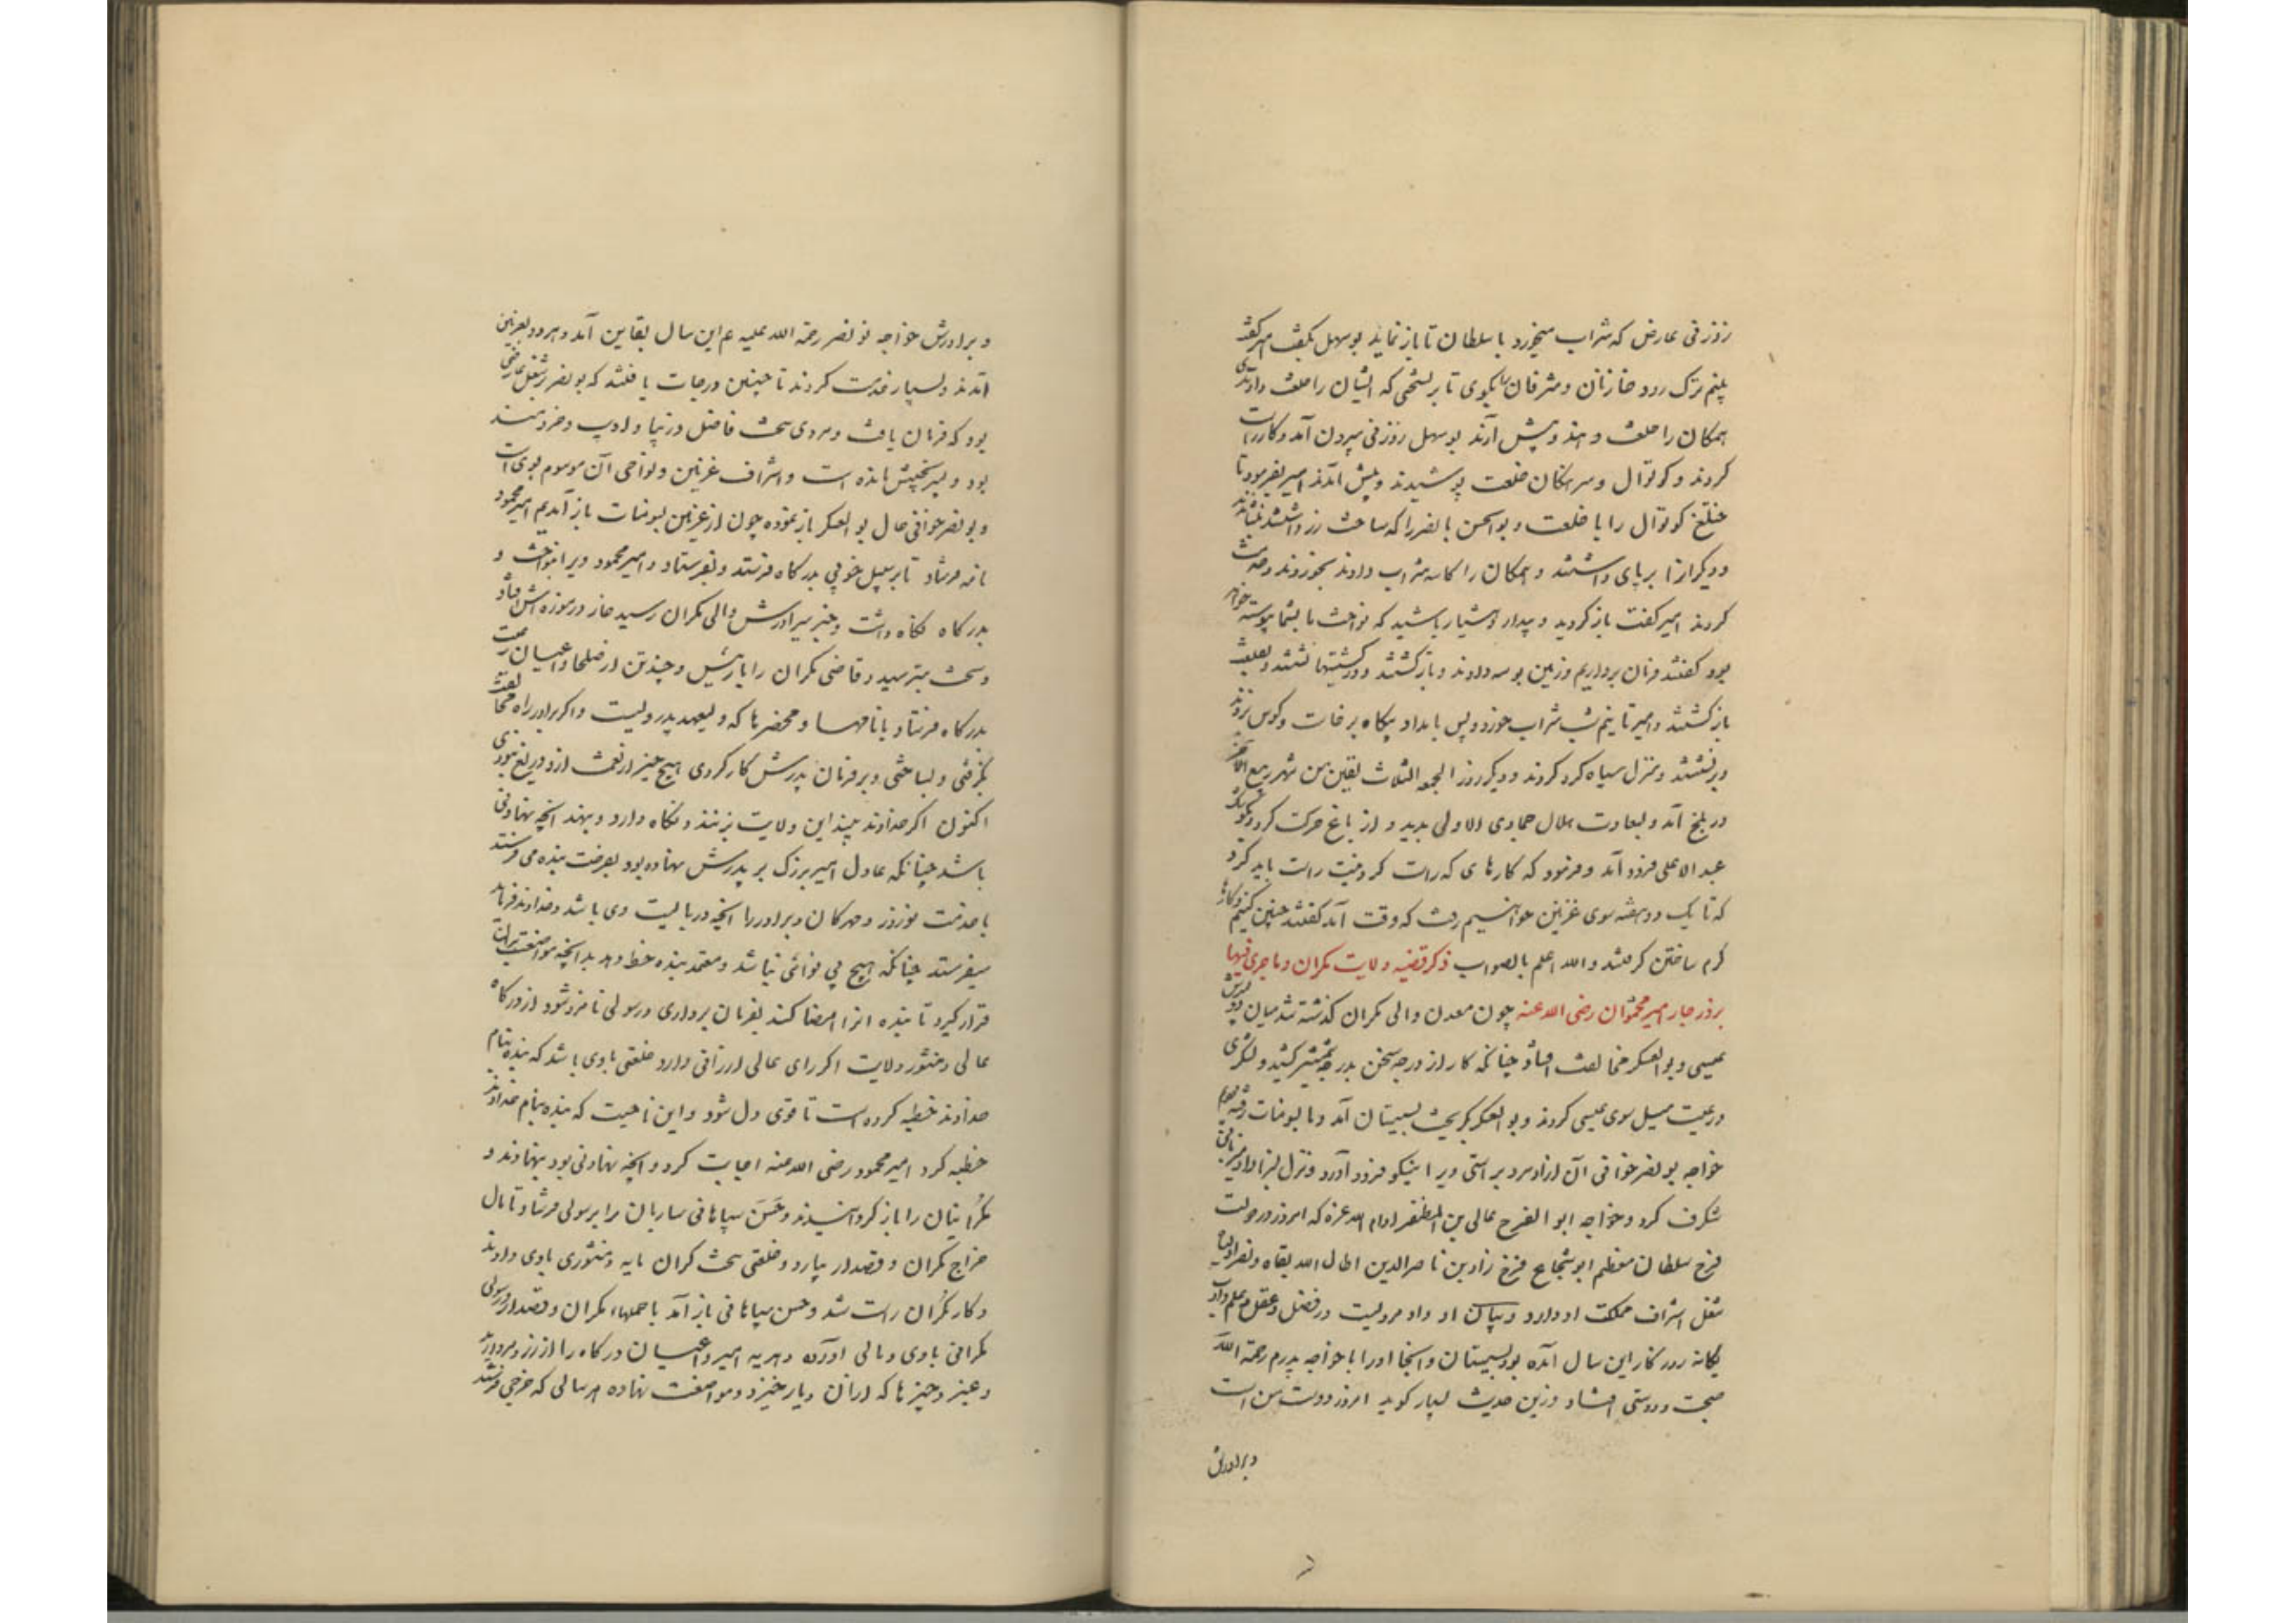 زوزنی عارض که شراب میخورد با سلطان تا باز نماید بوسهل بگفت امیر گفت
همگان را خلعت دهند و پیش آرند بوسهل زوزنی بیرون آمد و کار راست
کردند و کوتوال و سرهنگان خلعت پوشیدند و پیش آمدند امیر بفرمود تا
ختلغ کوتوال را با خلعت و بوالحسن بانصر را که ساخت زر داشتند بنشاندند
و دیگرانرا بر پای داشتند و همگان را کاسه شراب دادند بخوردند و خدمت
کردند امیر گفت باز گردید و بیدار و هشیار باشید که نواخت ما بشما پیوسته خواهد
بود گفتند فرمان برداریم و زمین بوسه دادند و بازگشتند و در کشتیها نشستند و بقلعت
بازگشتند و امیر تا نیم شب شراب خورد و پس بامداد پگاه برخاست و کوس بزدند
و برنشستند و منزل سیاه گرد کردند و دیگر روز الجمعه الثلاث بقین من شهر ربیع الآخر
در بلخ آمد و بسعادت هلال جمادی الاولی بدید و از باغ حرکت کرد و بکوشک
عبد الاعلی فرود آمد و فرمود که کارهای که راست کردنیست راست باید کرد
که تا یک دو هفته سوی غزنین خواهیم رفت که وقت آمد گفتند چنین کنیم و کارها
گرم ساختن گرفتند و الله اعلم بالصواب ذکر قضیه ولایت مکران و ما جری فیها
بروزگار امیر محمود رضی الله عنه چون معدان والی مکران گذشته شد میان دو پسرش
عیسی و بوالعسکر مخالفت افتاد چنانکه کار از درجه سخن بدرجه شمشیر کشید و لشکری
و رعیت میل سوی عیسی کردند و بوالعسکر بگریخت بسیستان آمد و ما بسومنات رفته بودیم
خواجه بونصر خوافی آن آزادمرد براستی ویرا نیکو فرود آورد و نزل بسزا داد و میزبانی
شگرف کرد و خواجه ابوالفرج عالی بن المظفر ادام الله عزه که امروز در دولت
فرخ سلطان معظم ابوشجاع فرخ زاد بن ناصرالدین اطال الله بقاه و نصر اولیاه
شغل اشراف مملکت او دارد و نیابان او داد مردیست در فضل و عقل و علم و ادب
یگانه روزگار این سال آمده بود بسیستان و آنجا او را با خواجه پدرم رحمة الله
صحبت و دوستی افتاد و زین حدیث بسیار گوید امروز دوست من است
و برادرش
و برادرش خواجه نو نصر رحمة الله علیه هم این سال بقاین آمد و هر دو بغزنین
آمدند و بسیار خدمت کردند تا چنین درجات یافتند که بونصر بشغل عارضی
بود که فرمان یافت و مردی سخت فاضل و زیبا و ادیب و خردمند
بود و پسر نجیبش مانده است و اشراف غزنین و نواحی آن موسوم بوی است
و بونصر خوافی حال بوالعسکر باز نموده چون از غزنین بسومنات باز آمدیم امیر محمود
نامه فرستاد تا بر سبیل خوبی بدرگاه فرستد و بفرستاد و امیر محمود ویرا بنواخت و
بدرگاه نگاه داشت و خبر ببرادرش والی مکران رسید خار در موزه اش افتاد
و سخت بترسید و قاضی مکران را با رئیس و چند تن از صلحا و اعیان رعیت
بدرگاه فرستاد با نامهها و محضرها که ولیعهد پدر ویست و اگر برادر راه مخالفت
نگرفتی و بساختی و بر فرمان پدرش کار کردی هیچ چیز از نعمت ازو دریغ نبودی
اکنون اگر خداوند بیند این ولایت بر بنده نگاه دارد و بنهد آنچه نهادنی
باشد چنانکه عادل امیر بزرگ بر پدرش نهاده بود بفرصت بنده می فرستد
با خدمت نوروز و مهرگان و برادر را آنچه دربایست وی باشد و خداوند فرماید
میفرستد چنانکه هیچ بی نوائی نباشد و معتمد بنده خط دهد بدانچه مواضعت بران
قرار گیرد تا بنده آنرا امضا کند بفرمان برداری و رسولی نامزد شود از درگاه
عالی و منشور ولایت اگر رای عالی ارزانی دارد خلعتی با وی باشد که بنده بنام
خداوند خطبه کرده است تا قوی دل شود و این ناحیت که بنده بنام خداوند
خطبه کرد امیر محمود رضی الله عنه اجابت کرد و آنچه نهادنی بود بنهادند و
مکرانیان را باز گردانیدند و حسن سپاهانی ساربان را برسولی فرستاد تا مال
خراج مکران و قصدار بیارد و خلعتی سخت گران مایه و منشوری با وی دادند
و کار مکران راست شد و حسن سپاهانی باز آمد با حملهاء مکران و قصدار و رسولی
مکرانی با وی و مالی آورده و هدیه امیر و اعیان درگاه را از زر و مروارید
و عنبر و چیزها که از آن دیار خیزد و مواضعت نهاده هر سالی که خراجی فرستد